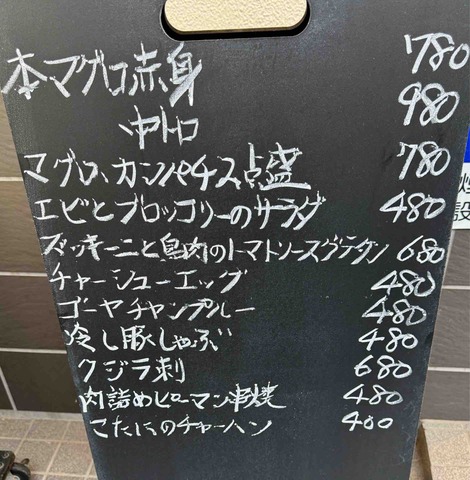 本マグロ赤身 780
中トロ 980
マグロ、カンパチ2点盛 780
エビとブロッコリーのサラダ 480
ズッキーニと鳥肉のトマトソースグラタン 680
チャーシューエッグ 480
ゴーヤチャンプルー 480
冷し豚しゃぶ 480
クジラ刺 680
肉詰めピーマン串焼 480
こたにのチャーハン 400